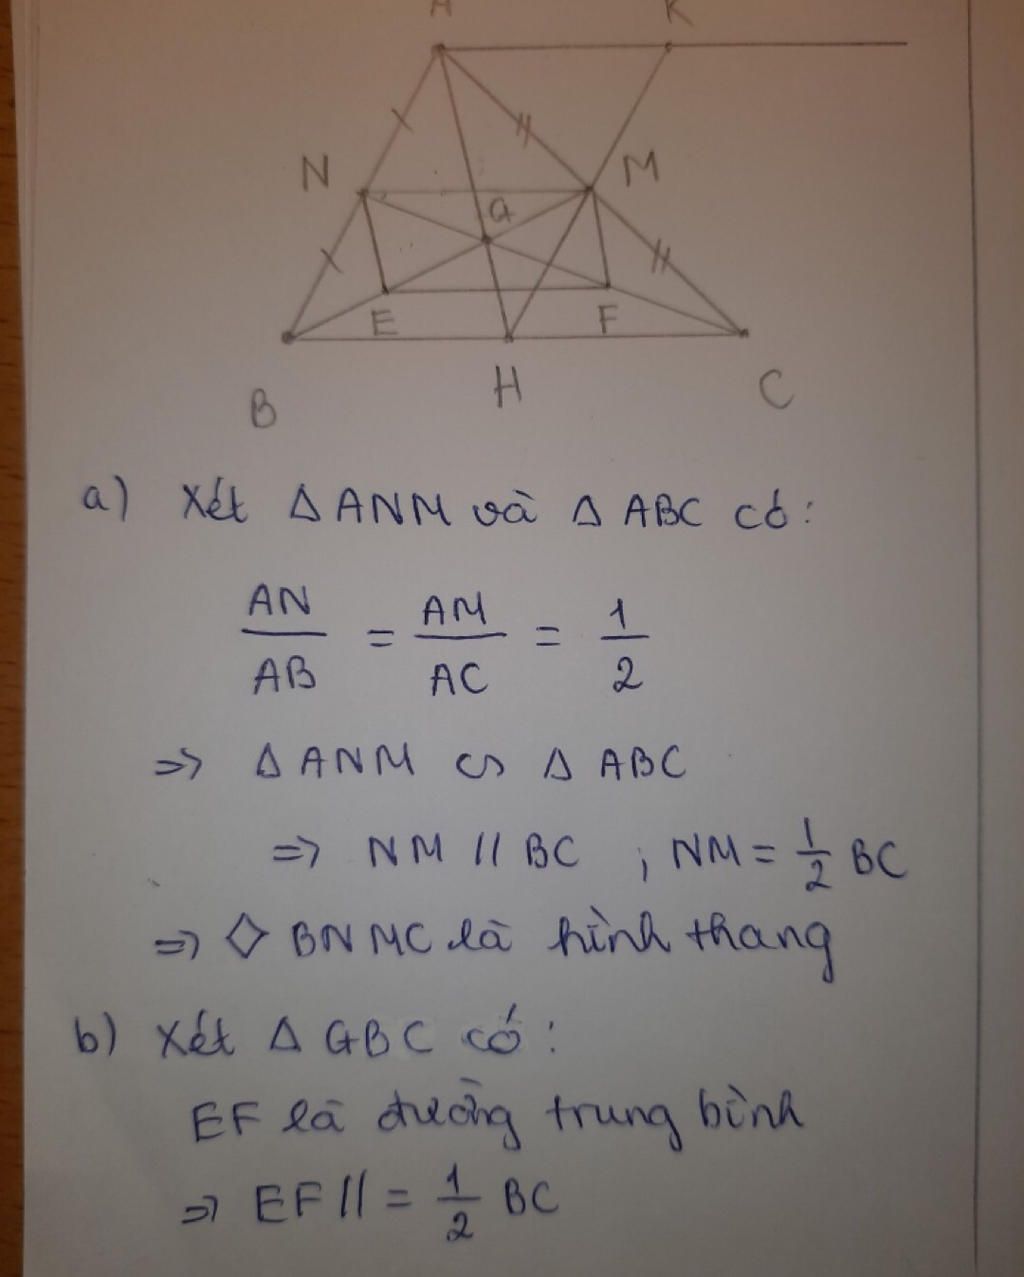 A K
N M
G
E F
B H C
a) Xét Δ ANM và Δ ABC có:
AN/AB = AM/AC = 1/2
=> Δ ANM ∽ Δ ABC
=> NM // BC ; NM = 1/2 BC
=> ◇ BNMC là hình thang
b) Xét Δ GBC có:
EF là đường trung bình
=> EF // = 1/2 BC